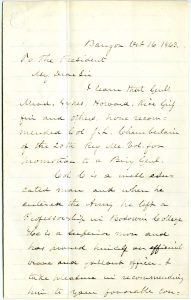 Bangor Oct 16 1863.
To The President
My Dear Sir
I learn that Genls
Mead, Sykes, Howard, Rice Grif
fin and others, have recom-
mended Col J. L. Chamberlain
of the 20th Reg Me Vol. for
promotion to a Brig Genl.
Col C is a well edu-
cated man and when he
entered the Army he left a
Professorship in Bowdoin College
He is a superior man and
has proved himself an efficient
brave and valiant officer. I
take pleasure in recommending
him to your favorable con-